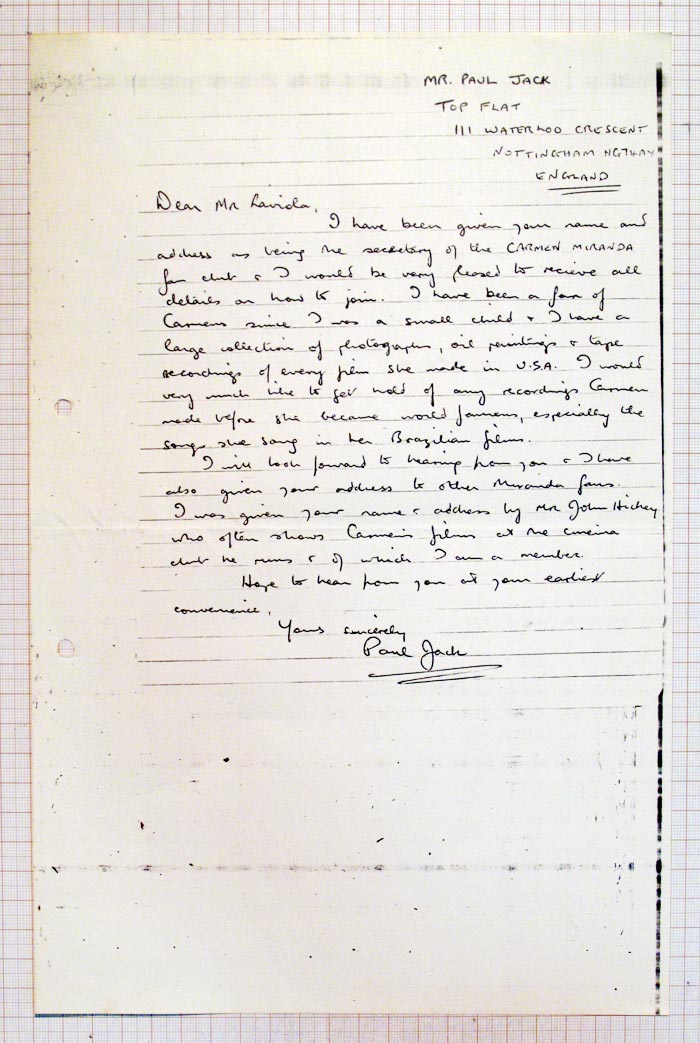 MR. PAUL JACK
TOP FLAT
111 WATERLOO CRESCENT
NOTTINGHAM
ENGLAND
Dear Mr Lavida,
I have been given your name and
address as being the secretary of the CARMEN MIRANDA
fan club & I would be very pleased to recieve all
details on how to join. I have been a fan of
Carmens since I was a small child & I have a
large collection of photographs, oil paintings & tape
recordings of every film she made in U.S.A. I would
very much like to get hold of any recordings Carmen
made before she became world famous, especially the
songs she sang in her Brazilian films.
I will look forward to hearing from you & I have
also given your address to other Miranda fans.
I was given your name & address by Mr John Hickey
who often shows Carmen's films at the cinema
club he runs & of which I am a member.
Hope to hear from you at your earliest
convenience.
Yours sincerely
Paul Jack